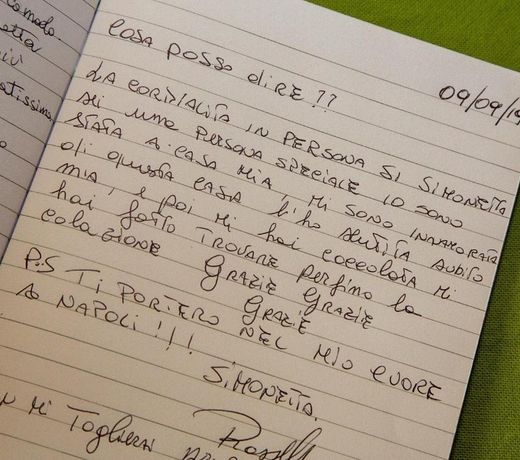 comodo.
etta
iù
atissima
09/09/19
COSA POSSO DIRE ??
LA CORDIALITÀ IN PERSONA SI SIMONETTA
SEI UNA PERSONA SPECIALE IO SONO
STATA A CASA MIA, MI SONO INNAMORATA
di questa CASA l'ho sentita subito
mia, e poi mi hai coccolata mi
hai fatto TROVARE perfino la
colazione GRAZIE GRAZIE
GRAZIE
P.S TI PORTERO NEL MIO CUORE
A NAPOLI !!!
SIMONETTA.
mi Togliersi